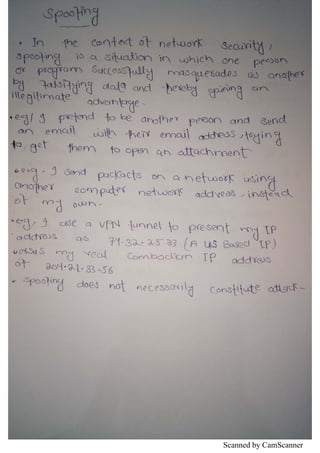 Spoofing
• In the context of network security,
spoofing is a situation in which one person
or program successfully masquerades as another
by falsifying data and thereby gaining an
illegitimate advantage.
• eg/ I pretend to be another person and send
an email with their email address, trying
to get them to open an attachment
• e.g. I send packacts on a network using
another computer network address, instead
of my own.
• eg, I use a VPN tunnel to present my IP
address as 74.32.25.33 (A US Based IP)
versus my real Combodian IP address
of 204.2.1.33.56
• Spoofing does not necessarily constitute attack.
Scanned by CamScanner